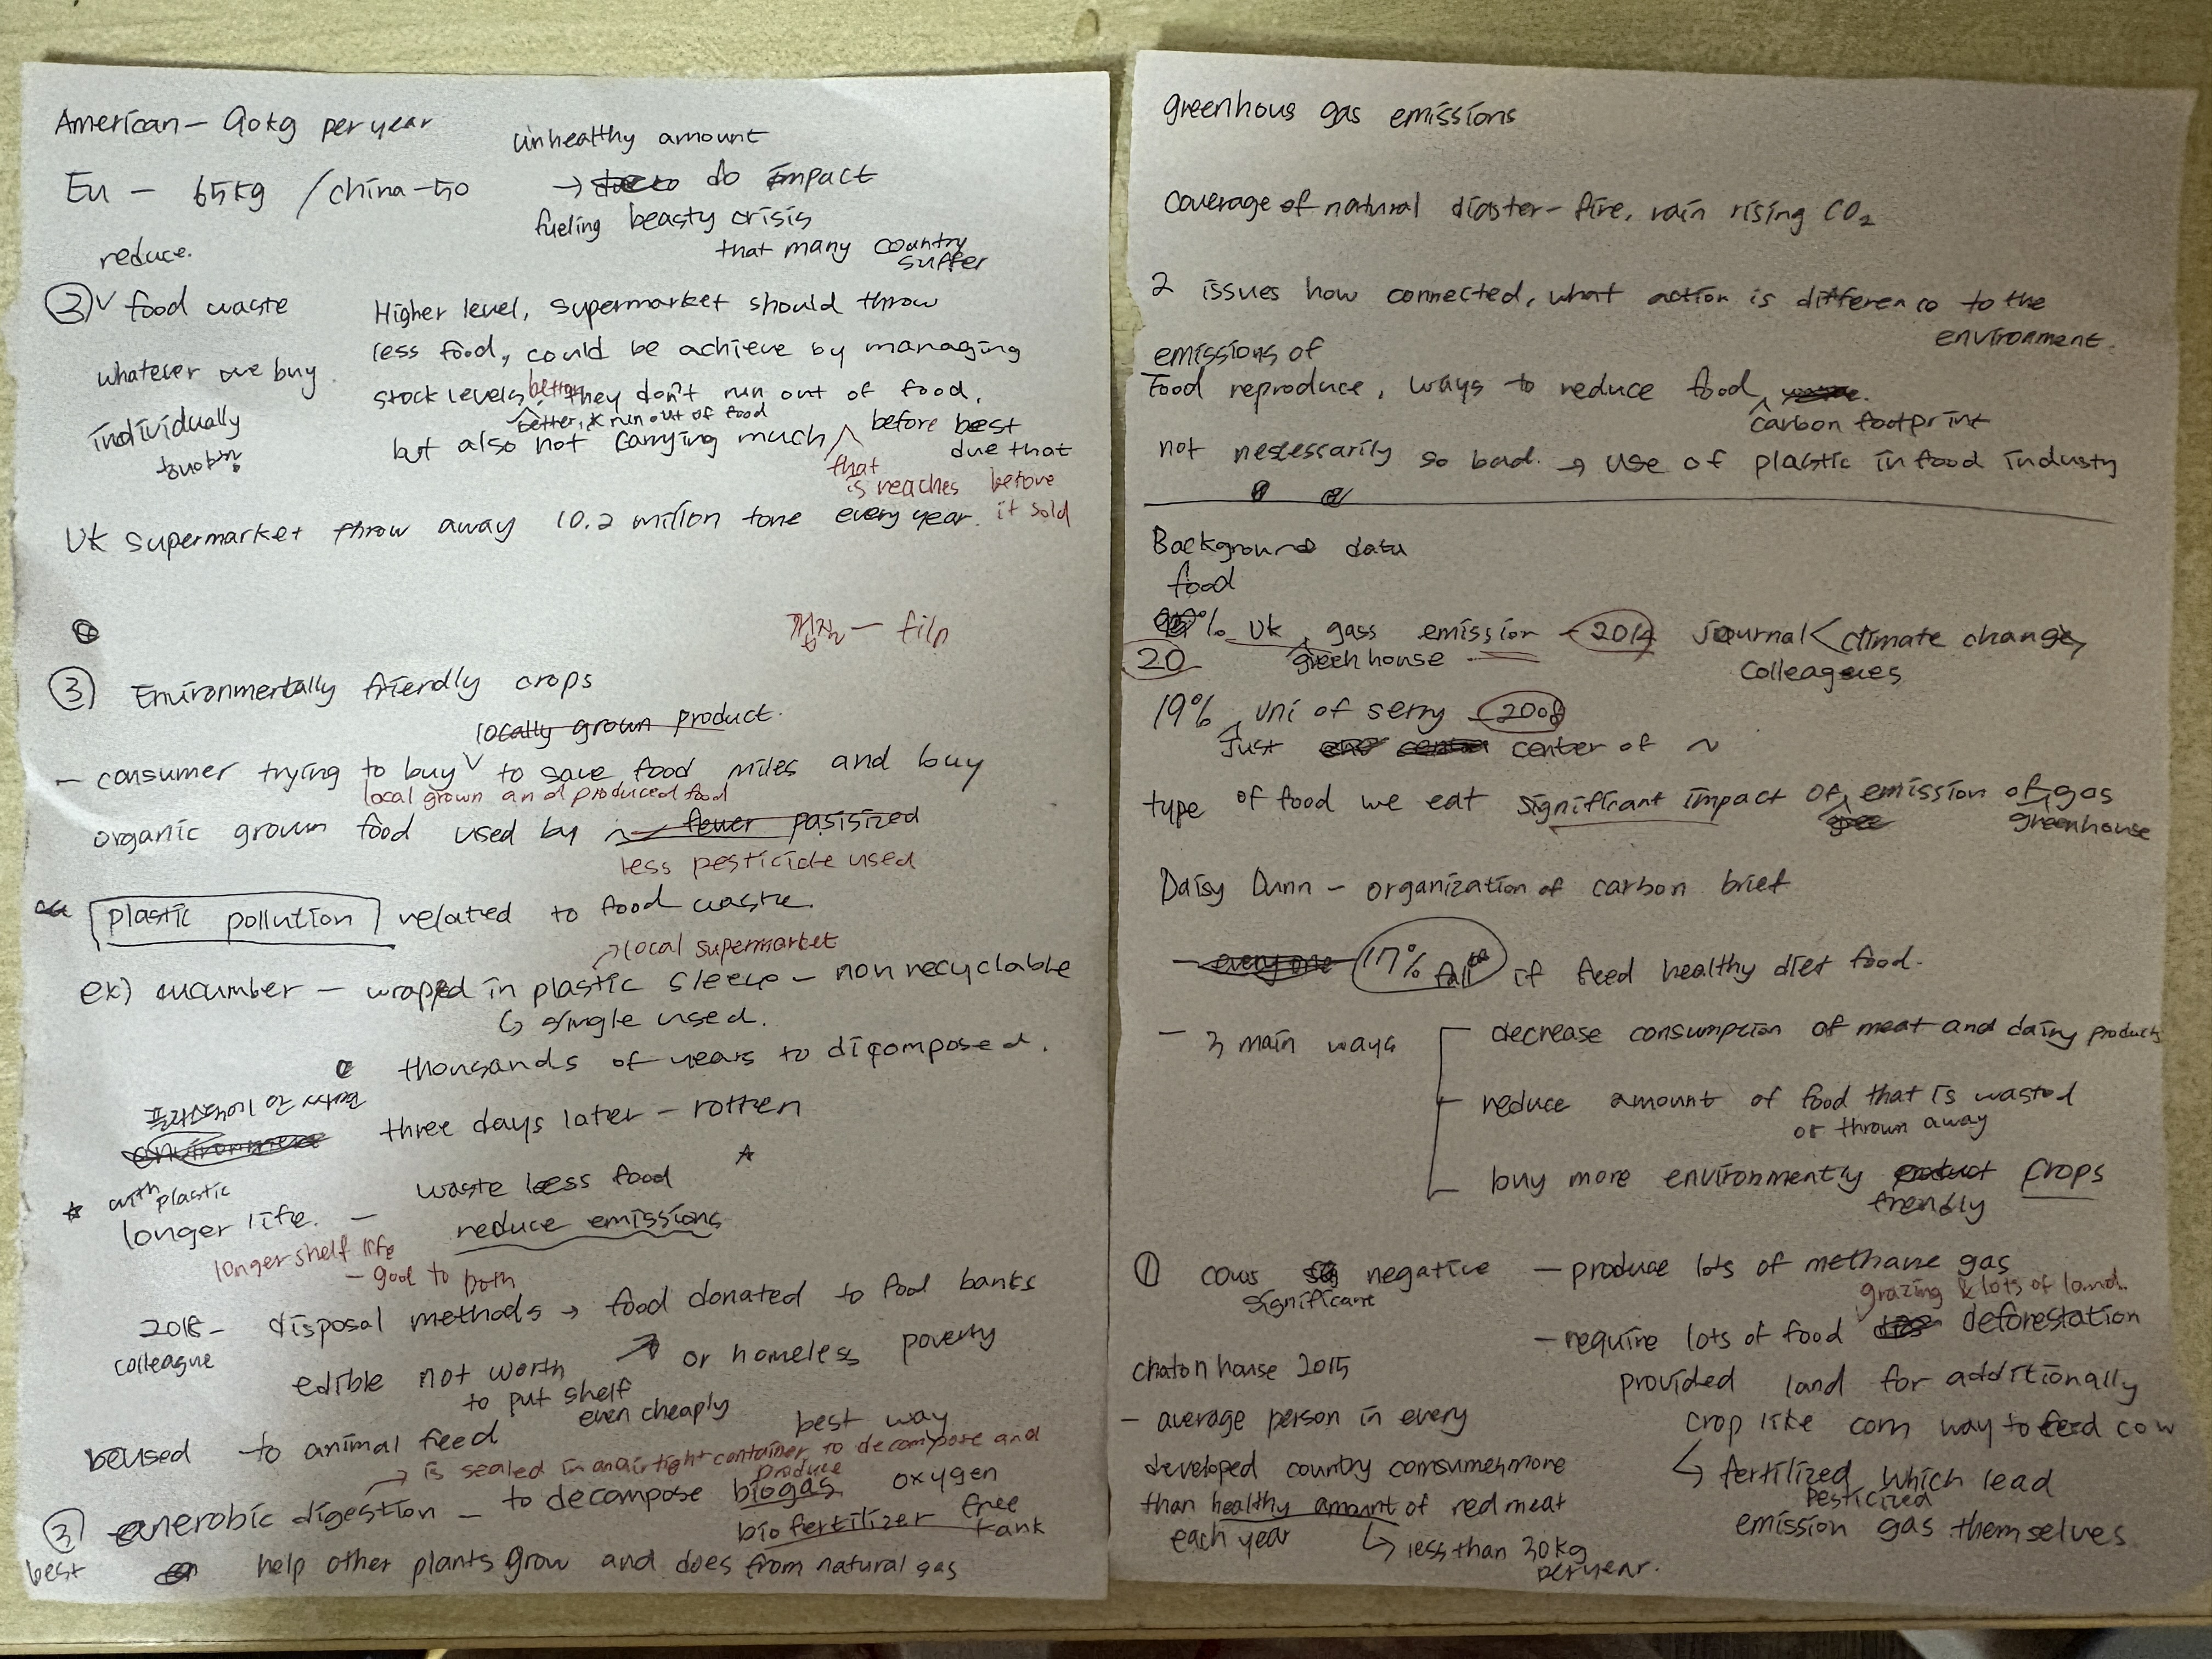 American - 90kg per year
unhealthy amount
Eu - 65kg / china - 50
→ do impact
fueling beasty crisis
that many country
suffer
reduce.
② food waste
Higher level, supermarket should throw
less food, could be achieve by managing
whatever we buy
stock levels better they don't run out of food,
better, & run out of food
individually
but also not carrying much before best
due that
that
is reaches before
it sold
UK supermarket throw away 10.2 million tone every year.
껍질 - film
③ Environmentally friendly crops
locally grown product.
- consumer trying to buy to save food miles and buy
local grown and produced food
organic grown food used by ~ fewer pasisized
less pesticide used
plastic pollution related to food waste.
local supermarket
ex) cucumber - wrapped in plastic sleeve - non recyclable
↳ single used.
thousands of years to dicomposed.
플라스틱에 안 싸면
three days later - rotten
waste less food
* with plastic
longer life. -
reduce emissions
longer shelf life
- good to both
2018 - disposal methods → food donated to food banks
colleague
or homeless poverty
edible not worth
to put shelf
even cheaply
best way
beused to animal feed
→ is sealed in an airtight container to decompose and
produce
③ anerobic digestion - to decompose biogas oxygen
free
tank
bio fertilizer
best help other plants grow and does from natural gas
greenhous gas emissions
coverage of natural diaster - fire, rain rising CO₂
2 issues how connected, what action is differen to the
environment.
emissions of
Food reproduce, ways to reduce food
carbon footprint
not nescessarily so bad. → use of plastic in food industy
Background data
food
% UK gass emission - 2014 Journal < climate change,
20 greenhouse
colleagues
19% uni of serry - 2008
Just center of ~
type of food we eat significant impact of emission of gas
greenhouse
Daisy Dunn - organization of carbon brief
- everyone 17% fall if feed healthy diet food.
- 3 main ways
decrease consumption of meat and dairy products
reduce amount of food that is wasted
or thrown away
buy more environmently product crops
frendly
① cows negative - produce lots of methane gas
significant
grazing & lots of land.
- require lots of food deforestation
chaton house 2015
provided land for additionally
- average person in every
crop like corn way to feed cow
developed country comsumer more
↳ fertilized which lead
pesticized
than healthy amount of red meat
emission gas themselves
each year
↳ less than 30kg
per year.